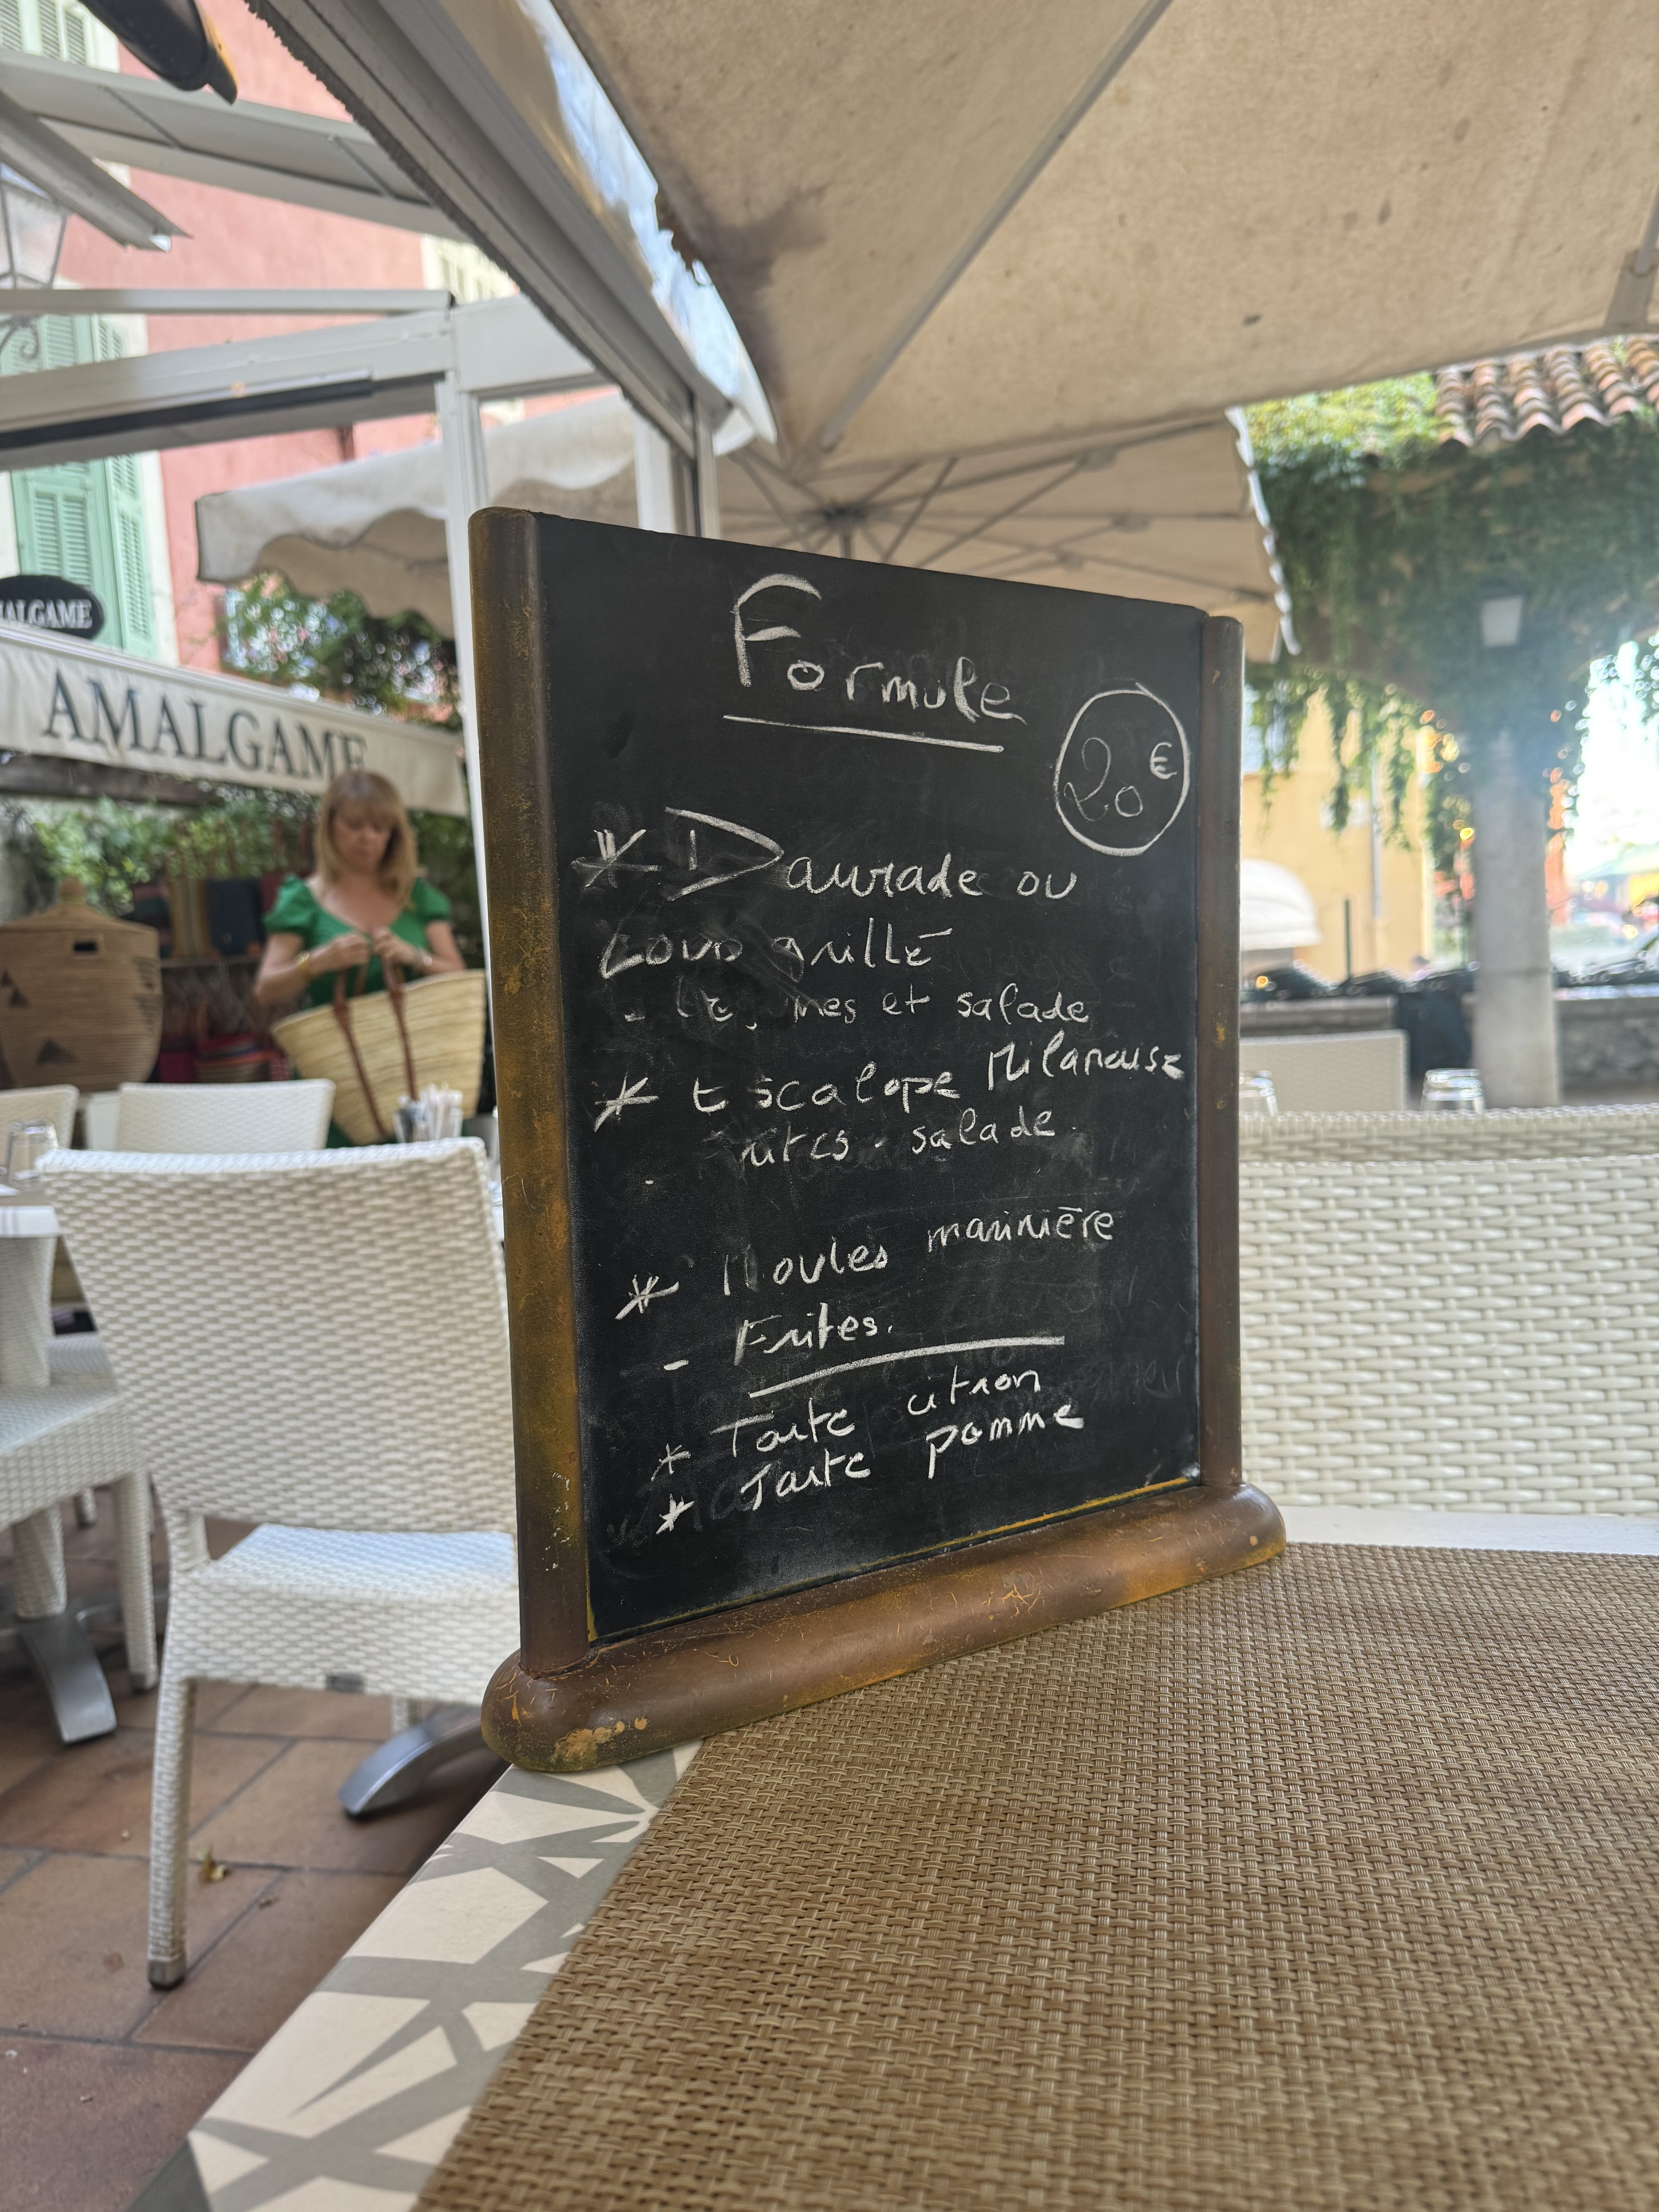 ALGAME
AMALGAME
Formule
20 €
* Daurade ou
Loup grillé
- et salade
* Escalope Milanaise
Frites - salade.
* Moules marinière
- Frites.
* Tarte citron
* Tarte pomme